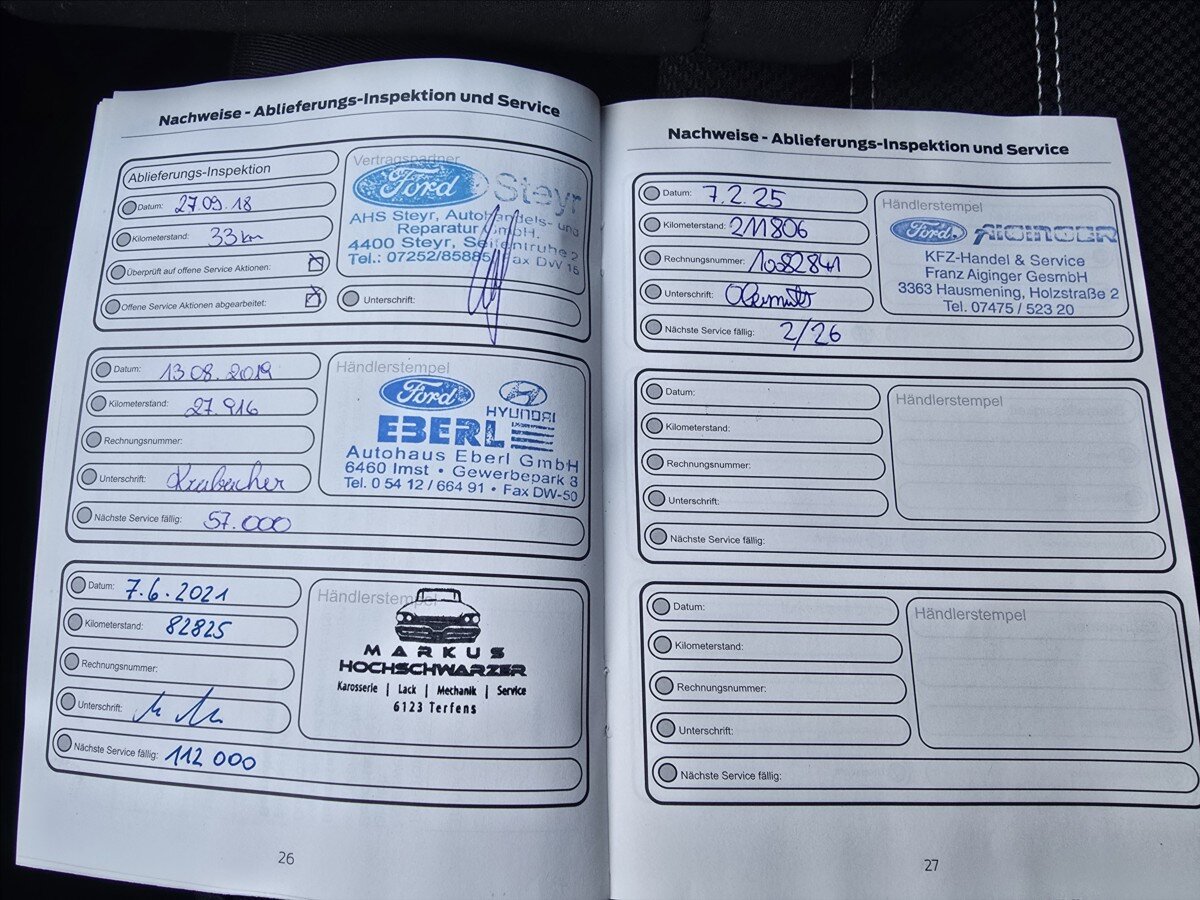 Nachweise - Ablieferungs-Inspektion und Service
Ablieferungs-Inspektion
Datum: 27 09. 18
Kilometerstand: 33 km
Überprüft auf offene Service Aktionen:
Offene Service Aktionen abgearbeitet:
Vertragspartner
Ford Steyr
AHS Steyr, Autohandels- und
Reparatur GmbH.
4400 Steyr, Seifentruhe 2
Tel.: 07252/85885 Fax DW 15
Unterschrift:
Datum: 13 08. 2019
Kilometerstand: 27.916
Rechnungsnummer:
Unterschrift: Krabacher
Nächste Service fällig: 57.000
Händlerstempel
Ford HYUNDAI
EBERL
Autohaus Eberl GmbH
6460 Imst • Gewerbepark 3
Tel. 0 54 12 / 664 91 • Fax DW-50
Datum: 7.6.2021
Kilometerstand: 82825
Rechnungsnummer:
Unterschrift:
Nächste Service fällig: 112 000
Händlerstempel
MARKUS
HOCHSCHWARZER
Karosserie | Lack | Mechanik | Service
6123 Terfens
26
Nachweise - Ablieferungs-Inspektion und Service
Datum: 7.2.25
Kilometerstand: 211806
Rechnungsnummer: 1082841
Unterschrift:
Nächste Service fällig: 2/26
Händlerstempel
Ford AIGINGER
KFZ-Handel & Service
Franz Aiginger GesmbH
3363 Hausmening, Holzstraße 2
Tel. 07475 / 523 20
Datum:
Kilometerstand:
Rechnungsnummer:
Unterschrift:
Nächste Service fällig:
Händlerstempel
Datum:
Kilometerstand:
Rechnungsnummer:
Unterschrift:
Nächste Service fällig:
Händlerstempel
27